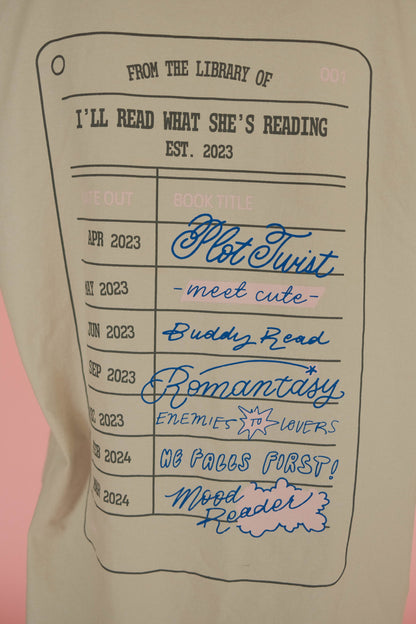 FROM THE LIBRARY OF 001
I'LL READ WHAT SHE'S READING
EST. 2023
DATE OUT BOOK TITLE
APR 2023 Plot Twist
MAY 2023 -meet cute-
JUN 2023 Buddy Read
SEP 2023 Romantasy
DEC 2023 ENEMIES TO LOVERS
FEB 2024 HE FALLS FIRST!
MAR 2024 Mood
Reader